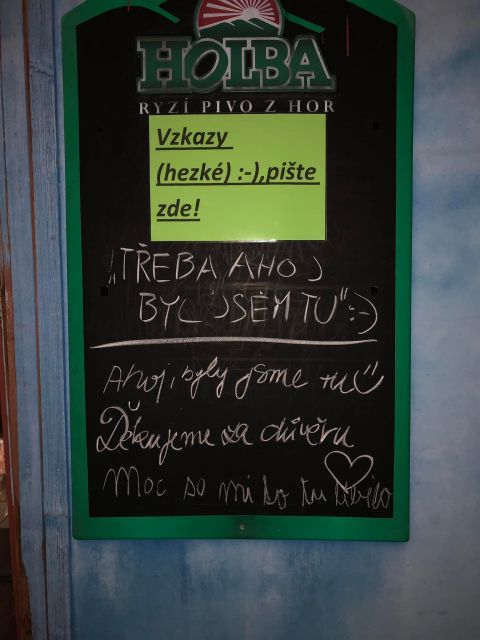 HOLBA
RYZÍ PIVO Z HOR
Vzkazy
(hezké) :-),pište
zde!
„TŘEBA AHOJ
BYL JSEM TU" :-)
Ahoj, byly jsme tu
Děkujeme za důvěru
Moc se mi to tu líbilo